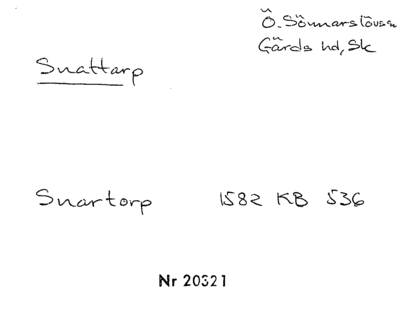 Ö. Sönnarslövs sn
Gärds hd, Sk
Snattarp
Snartorp 1582 KB 536
Nr 20321